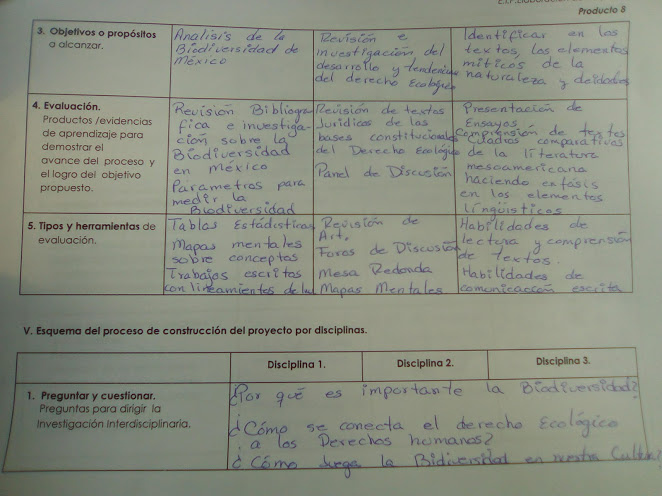 Producto 8
3. Objetivos o propósitos
a alcanzar.
Analisis de la
Biodiversidad de
México
Revisión e
investigación del
desarrollo y tendencias
del derecho Ecológico
Identificar en los
textos, los elementos
míticos de la
naturaleza y deidades
4. Evaluación.
Productos /evidencias
de aprendizaje para
demostrar el
avance del proceso y
el logro del objetivo
propuesto.
Revisión Bibliogra-
fica e investiga-
ción sobre la
Biodiversidad
en méxico
Parametros para
medir la
Biodiversidad
Revisión de textos
Juridicos de las
bases constitucionales
del Derecho Ecológico
Panel de Discusión
Presentación de
Ensayos
Comprensión de textos
Cuadros comparativos
de la literatura
mesoamericana
haciendo enfásis
en los elementos
lingüisticos
5. Tipos y herramientas de
evaluación.
Tablas Estádisticas
Mapas mentales
sobre conceptos
Trabajos escritos
con lineamientos de la
Revisión de
Art.
Foros de Discusión
Mesa Redonda
Mapas Mentales
Habilidades de
lectura y comprensión
de textos.
Habilidades de
comunicación escrita
V. Esquema del proceso de construcción del proyecto por disciplinas.
Disciplina 1. Disciplina 2. Disciplina 3.
1. Preguntar y cuestionar.
Preguntas para dirigir la
Investigación Interdisciplinaria.
¿Por qué es importante la Biodiversidad?
¿Cómo se conecta el derecho Ecológico
a los Derechos humanos?
¿Cómo juega la Bidiversidad en nuestra Cultura?